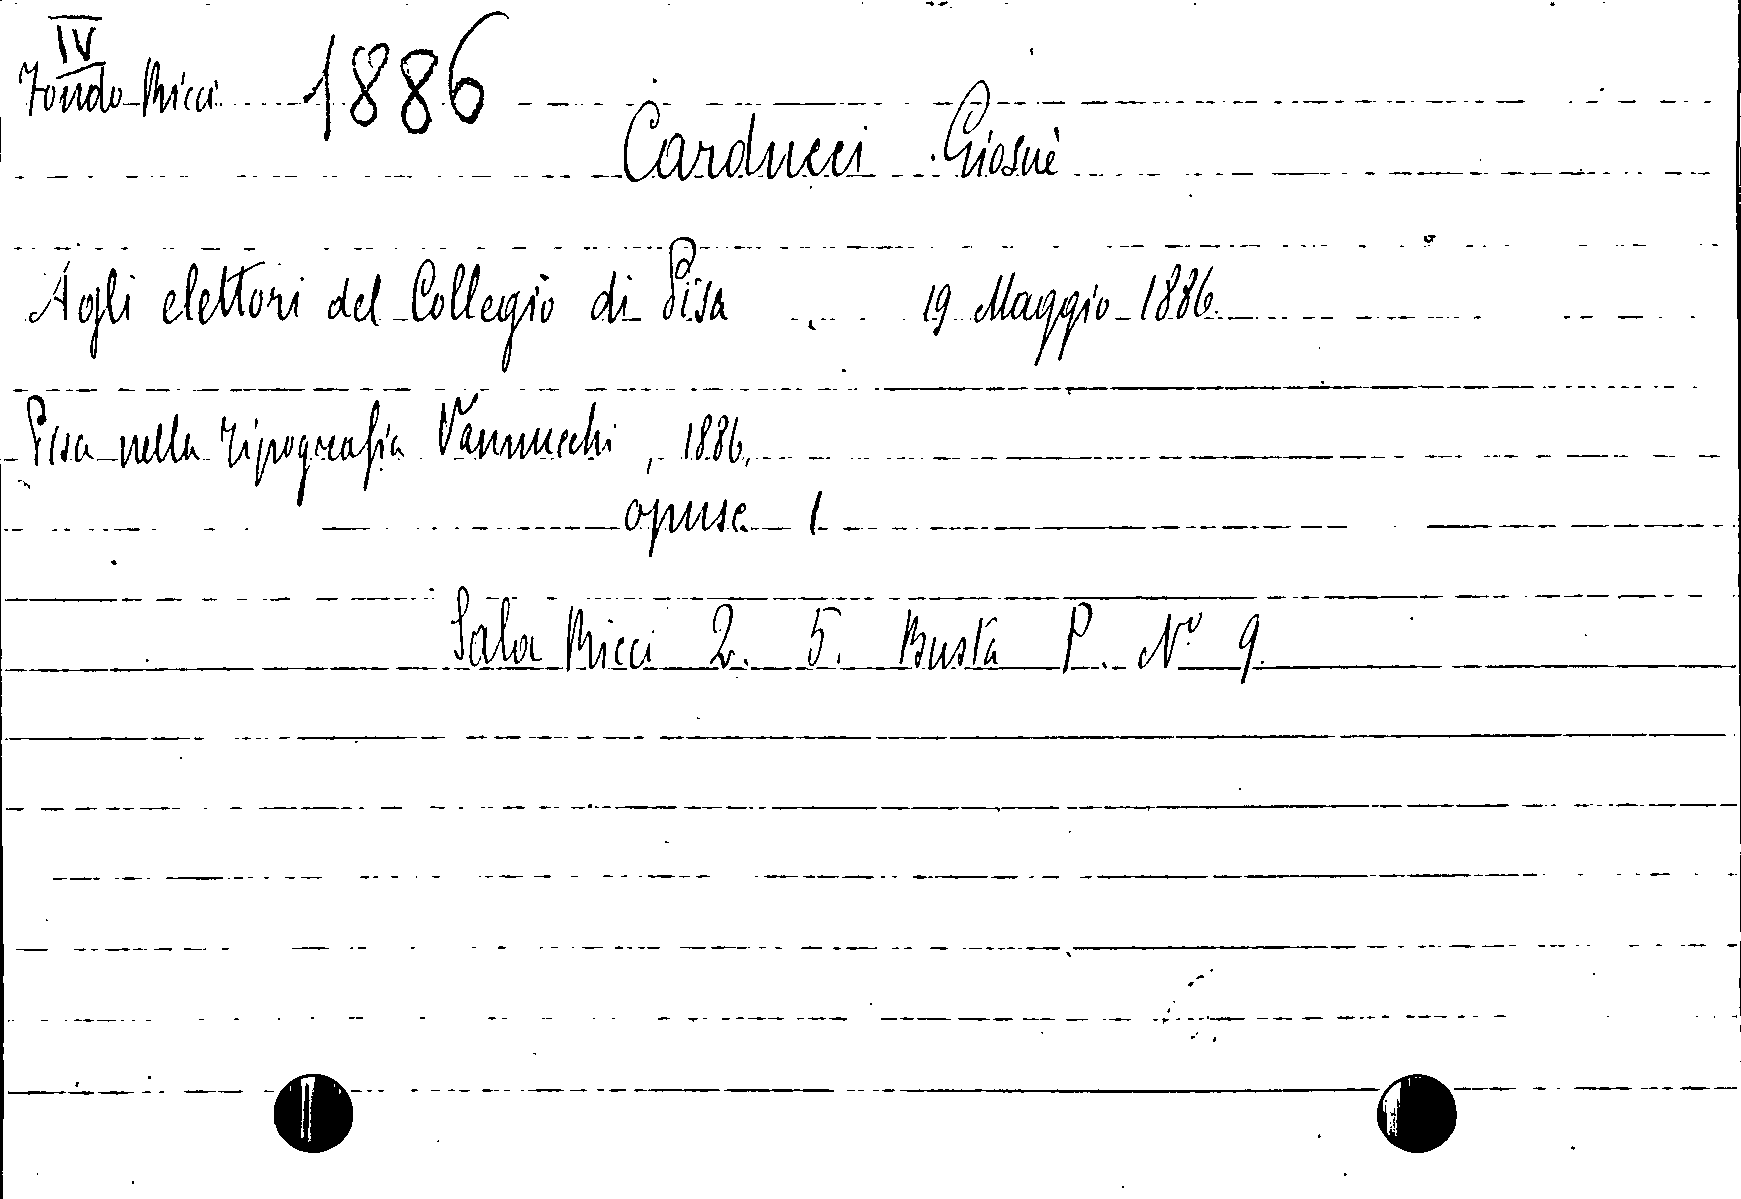 IV
Fondo Ricci 1886
Carducci Giosuè
Agli elettori del Collegio di Pisa. 19 Maggio 1886.
Pisa nella tipografia Vannucchi, 1886.
opusc. 1
Sala Ricci 2. 5. Busta P. N° 9.